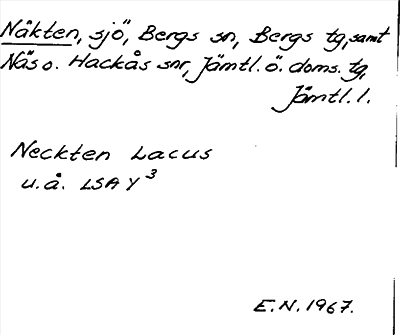 Näkten, sjö, Bergs sn, Bergs tg, samt
Näs o. Hackås snr, Jämtl. ö. doms. tg,
Jämtl. l.
Neckten Lacus
u.å. LSA Y³
E.N. 1967.